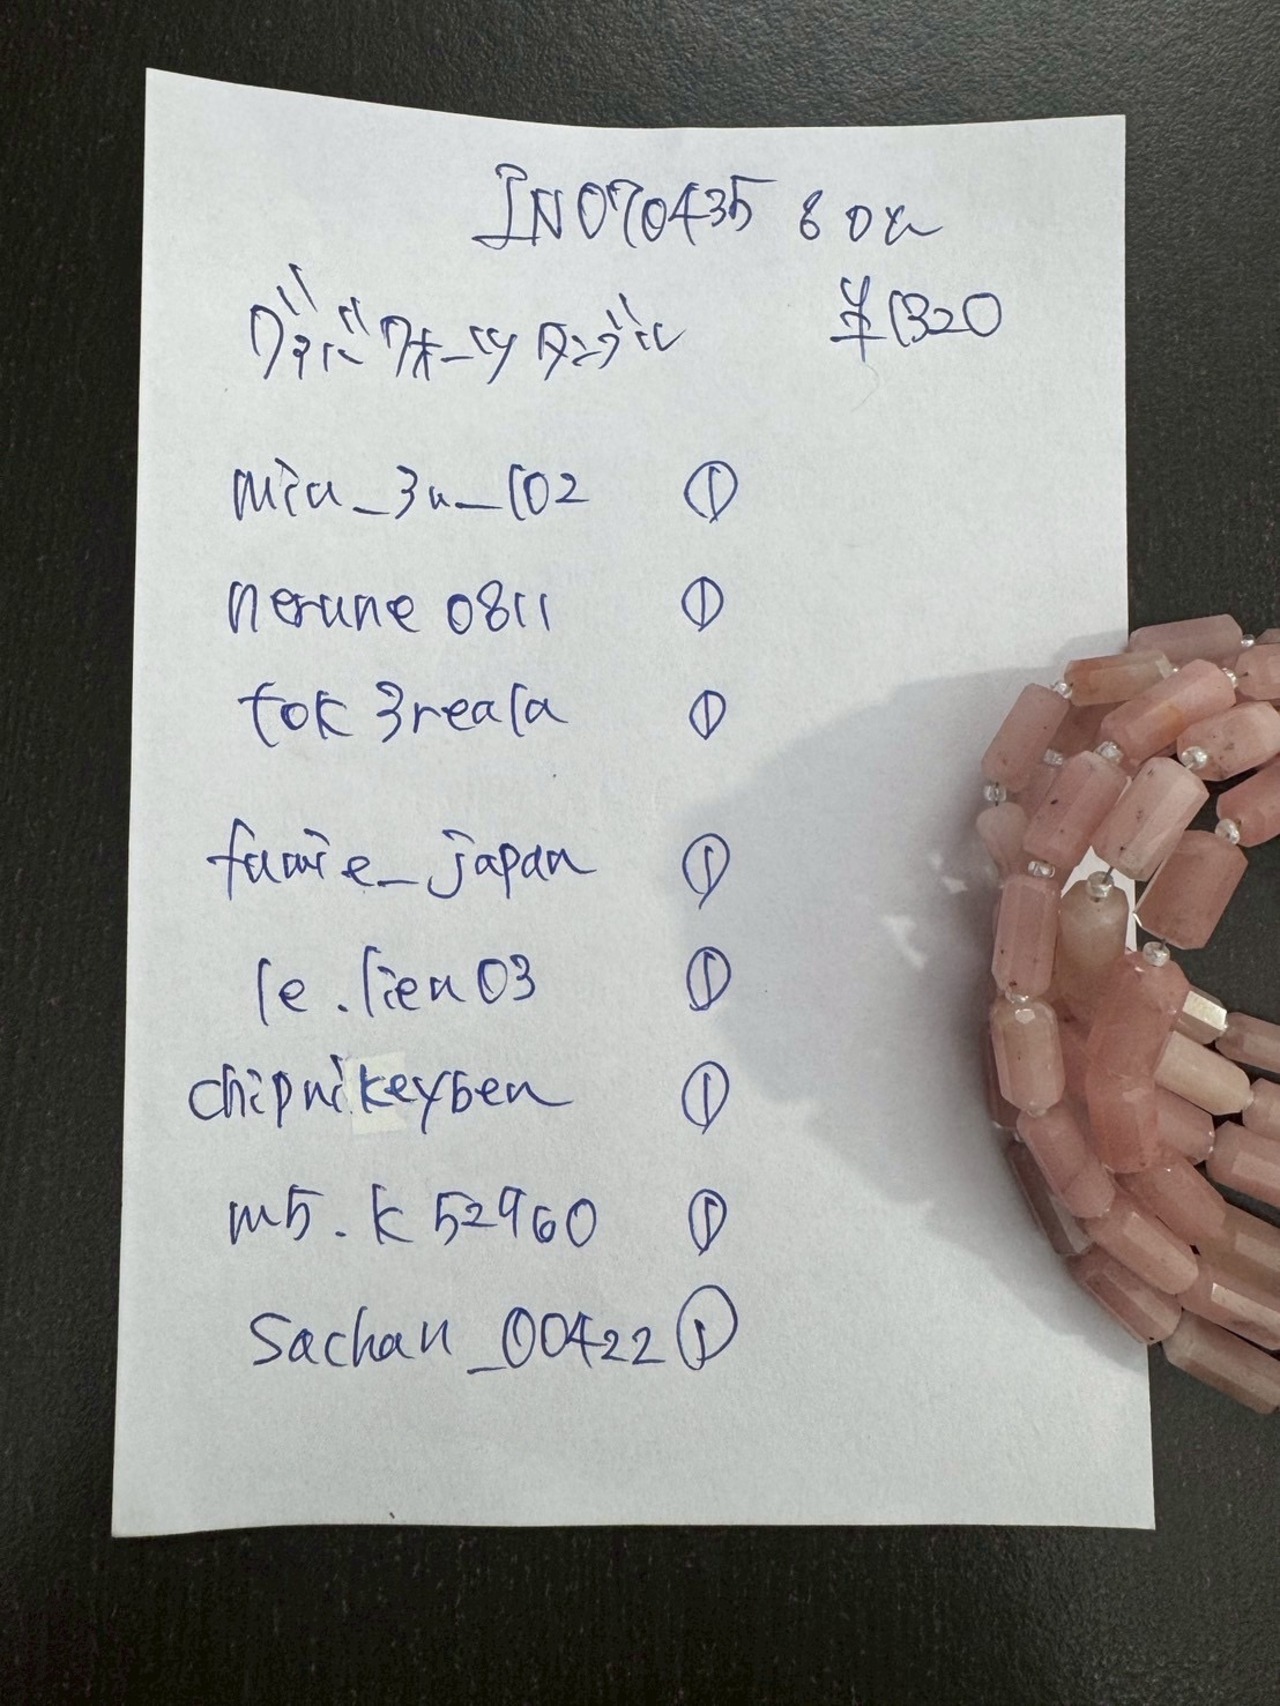 IN070435 80cm
グァバクォーツタンブル ¥1320
miu_3u_102 ①
nerune0811 ①
tok3reala ①
fumie_japan ①
le.lien03 ①
chipnikeyben ①
m5.k52960 ①
Sachan_00422 ①